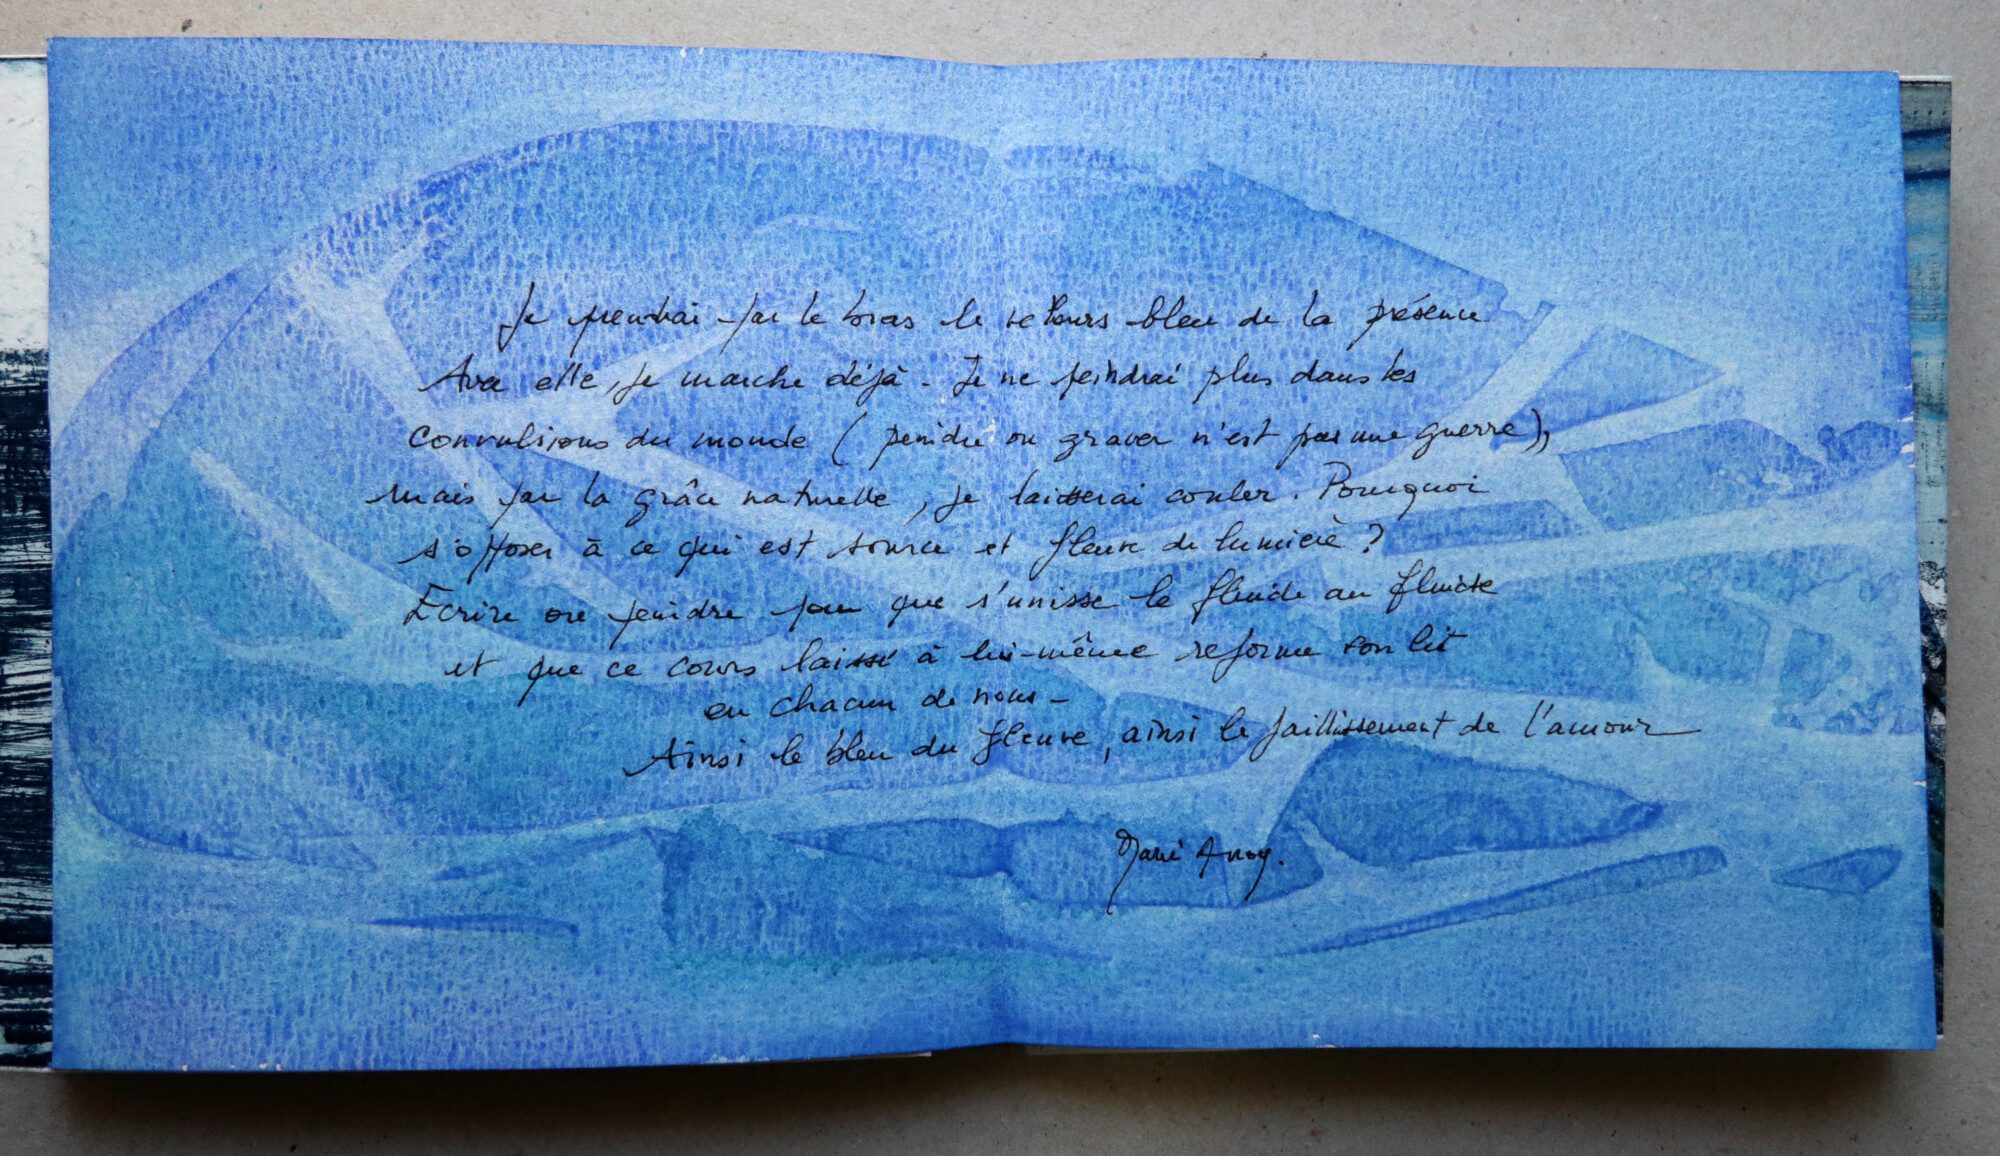 Je prendrai par le bras le retours bleu de la présence
Avec elle, je marche déjà - Je ne peindrai plus dans les
convulsions du monde ( peindre ou graver n'est pas une guerre),
mais par la grâce naturelle, je laisserai couler. Pourquoi
s'opposer à ce qui est source et fleuve de lumière ?
Ecrire ou peindre pour que s'unisse le fluide au fluide
et que ce cours laissé à lui-même reforme son lit
en chacun de nous -
Ainsi le bleu du fleuve, ainsi le jaillissement de l'amour
Marie